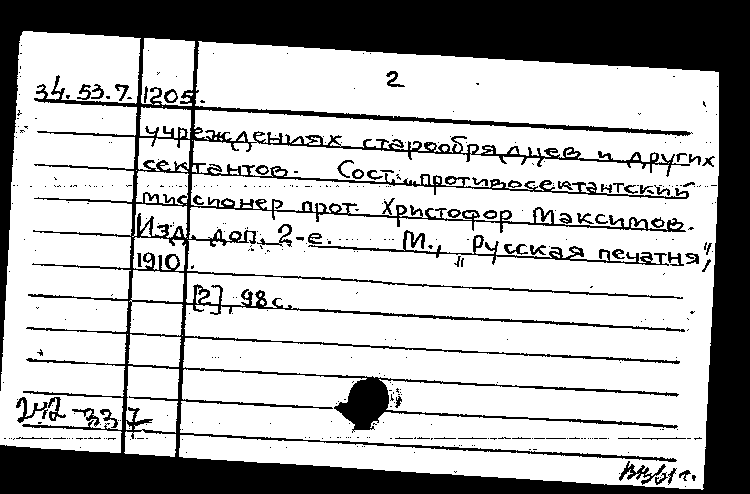 2
34.53.7. 1205.
учреждениях старообрядцев и других
сектантов. Сост. противосектантский
миссионер прот. Христофор Максимов.
Изд. доп. 2-е. М., „Русская печатня",
1910.
[2], 98 с.
242-337